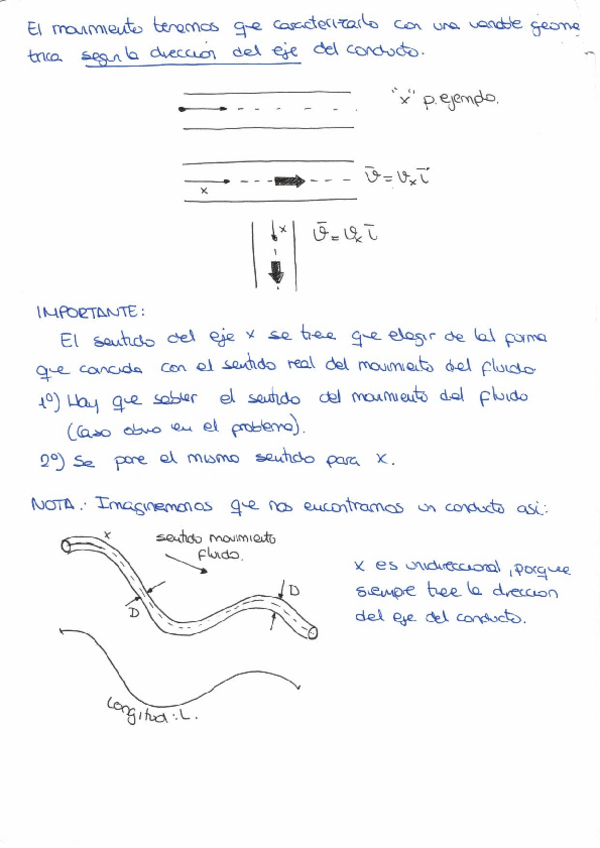 El movimiento tenemos que caracterizarlo con una variable geome
trica según la dirección del eje del conducto.
"x" p. ejemplo.
x
v̄ = vₓ ī
x
v̄ = vₓ ī
IMPORTANTE:
El sentido del eje x se tiene que elegir de tal forma
que coincida con el sentido real del movimiento del fluido
1º) Hay que saber el sentido del movimiento del fluido
(Caso obvio en el problema).
2º) Se pone el mismo sentido para x.
NOTA: Imaginemonos que nos encontramos un conducto asi:
x
sentido movimiento
fluido.
D
D
x es unidireccional, porque
siempre tiene la direccion
del eje del conducto.
Longitud: L.